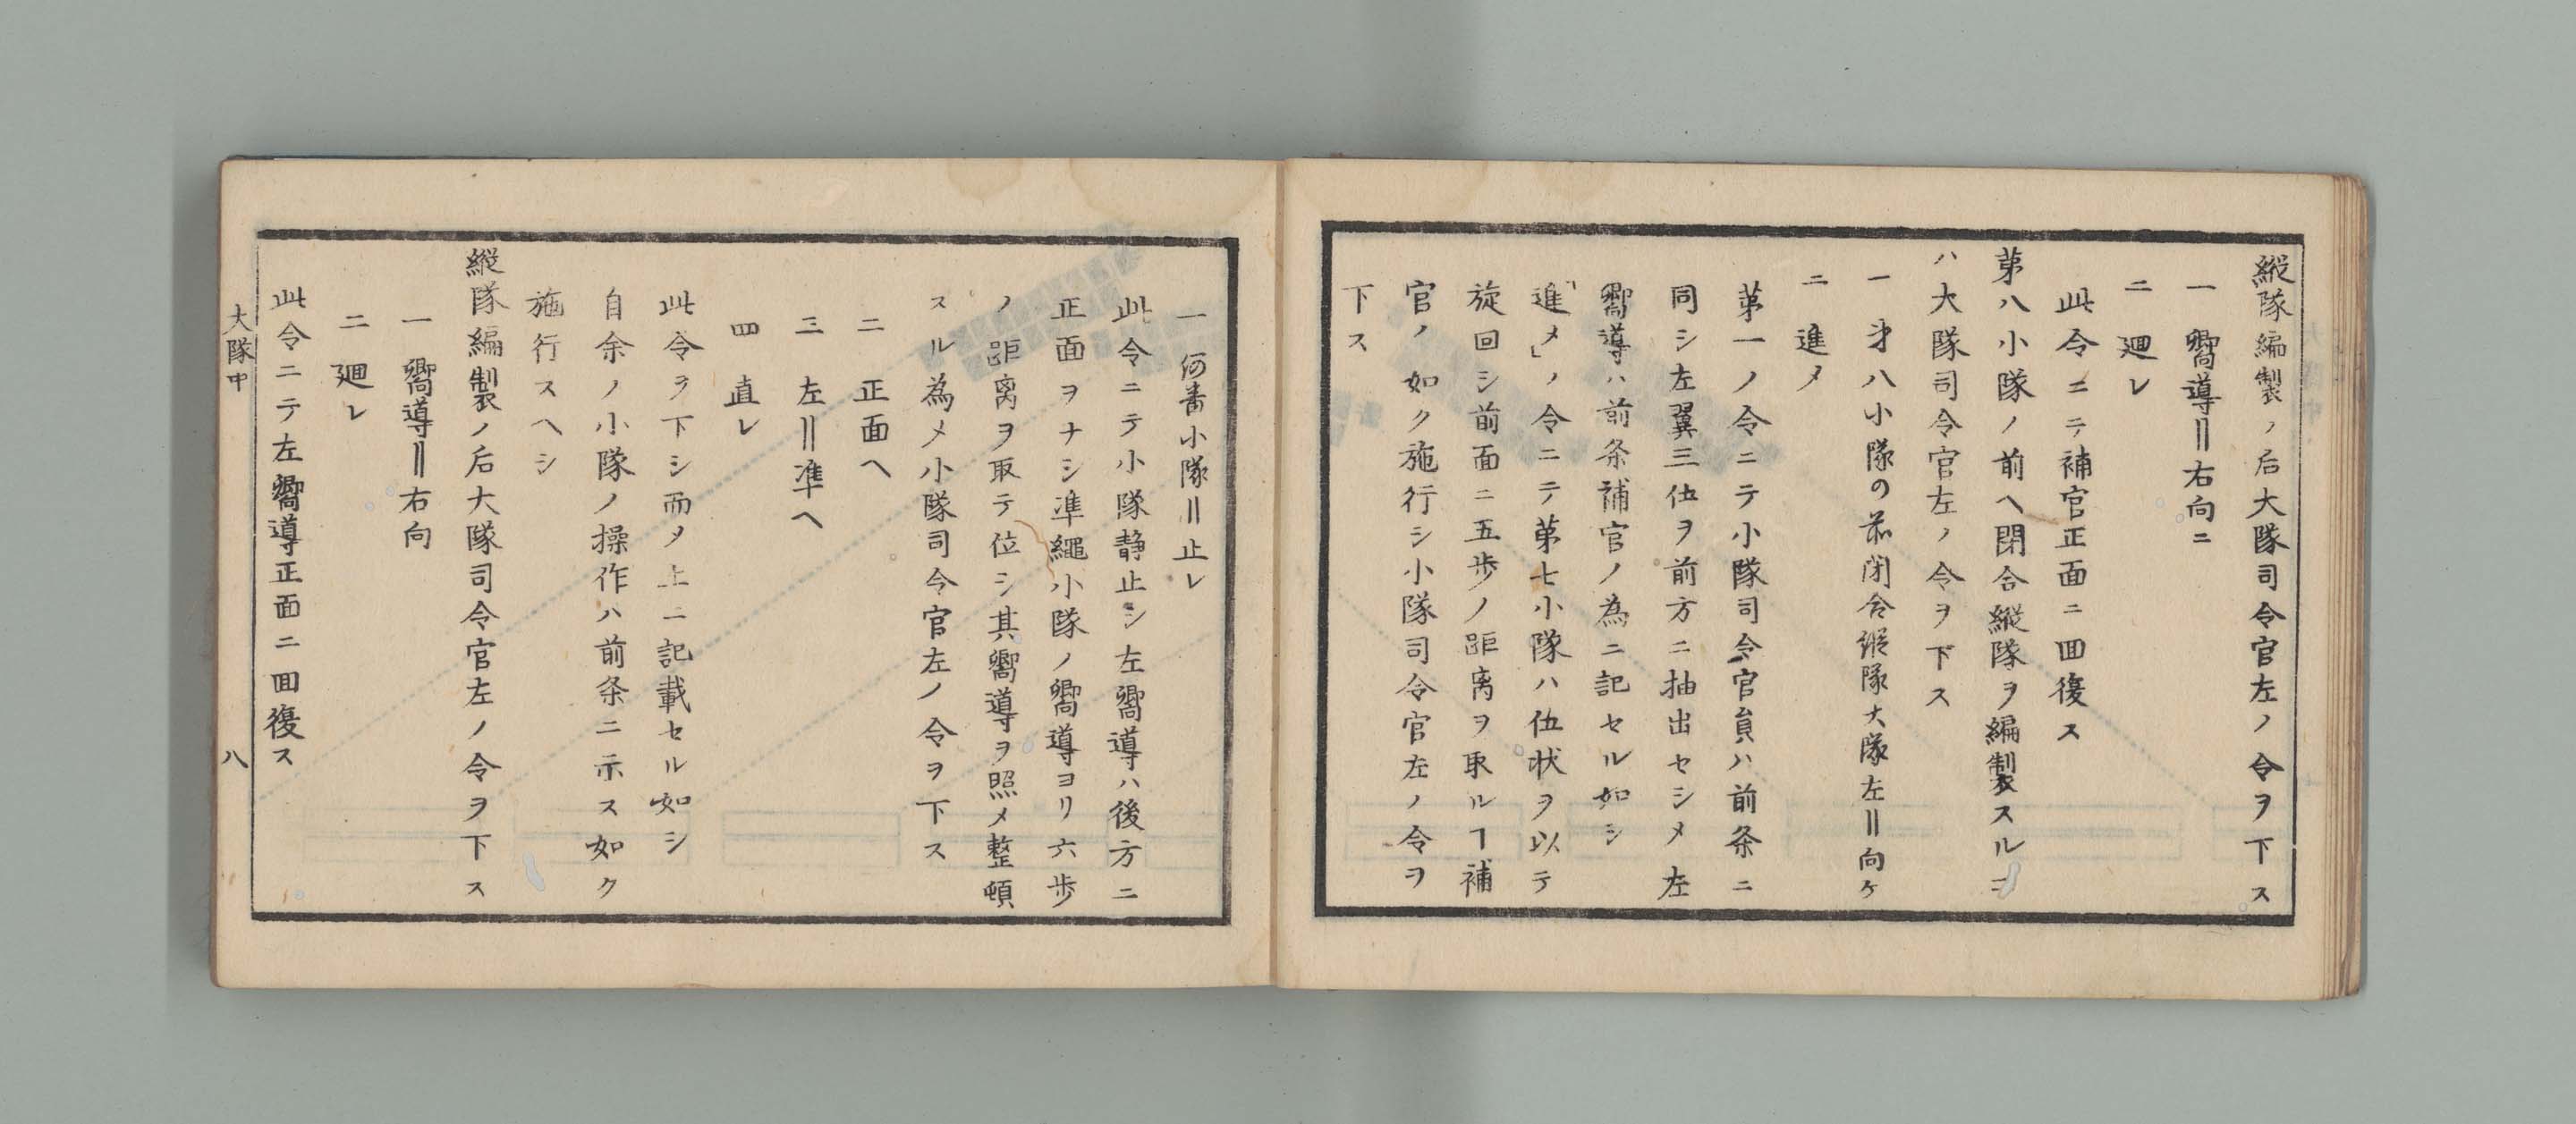 縦隊編製ノ后大隊司令官左ノ令ヲ下ス
一 嚮導‖右向ニ
二 廻レ
此令ニテ補官正面ニ回復ス
第八小隊ノ前ヘ閉合縦隊ヲ編製スルニ
ハ大隊司令官左ノ令ヲ下ス
一 第八小隊の前閉合縦隊大隊左‖向ケ
二 進メ
第一ノ令ニテ小隊司令官員ハ前条ニ
同シ左翼三伍ヲ前方ニ抽出セシメ左
嚮導ハ前条補官ノ為ニ記セル如シ
「進メ」ノ令ニテ第七小隊ハ伍状ヲ以テ
旋回シ前面ニ五歩ノ距离ヲ取ルヿ補
官ノ如ク施行シ小隊司令官左ノ令ヲ
下ス
一 何番小隊‖止レ
此令ニテ小隊静止シ左嚮導ハ後方ニ
正面ヲナシ準縄小隊ノ嚮導ヨリ六歩
ノ距离ヲ取テ位シ其嚮導ヲ照メ整頓
スル為メ小隊司令官左ノ令ヲ下ス
二 正面ヘ
三 左‖準ヘ
四 直レ
此令ヲ下シ而メ上ニ記載セル如シ
自余ノ小隊ノ操作ハ前条ニ示ス如ク
施行スヘシ
縦隊編製ノ后大隊司令官左ノ令ヲ下ス
一 嚮導‖右向
二 廻レ
此令ニテ左嚮導正面ニ回復ス
大隊中 八